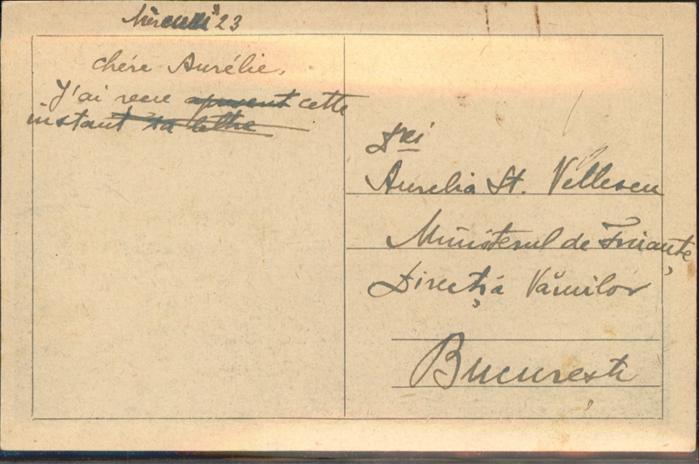 Mercredi 23
chére Aurélie,
J'ai recu apresent cette
instant ta lettre
Aurelia St. Vellescu
Ministerul de Finanțe
Direcția Vămilor
București